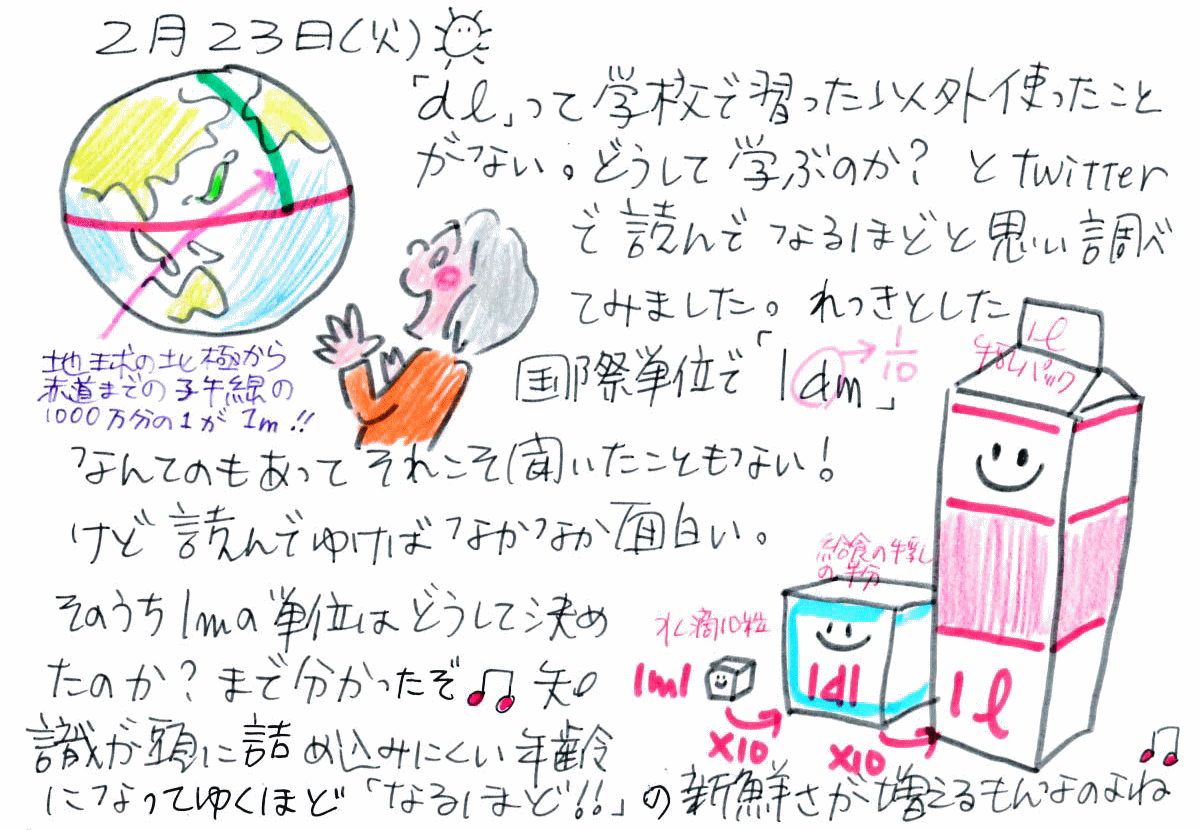 2月23日(火)
「dl」って学校で習った以外使ったこと
がない。どうして学ぶのか?とtwitter
で読んでなるほどと思い調べ
てみました。れっきとした
国際単位で「1dm」
→1/10
1l
牛乳パック
地球の北極から
赤道までの子午線の
1000万分の1が1m!!
なんてのもあってそれこそ聞いたこともない!
けど読んでゆけばなかなか面白い。
給食の牛乳
の半分
そのうち1mの単位はどうして決め
たのか?まで分かったぞ♫知
水滴10粒
1ml
1dl
1l
×10
×10
識が頭に詰め込みにくい年齢
になってゆくほど「なるほど!!」の新鮮さが増えるもんなのよね